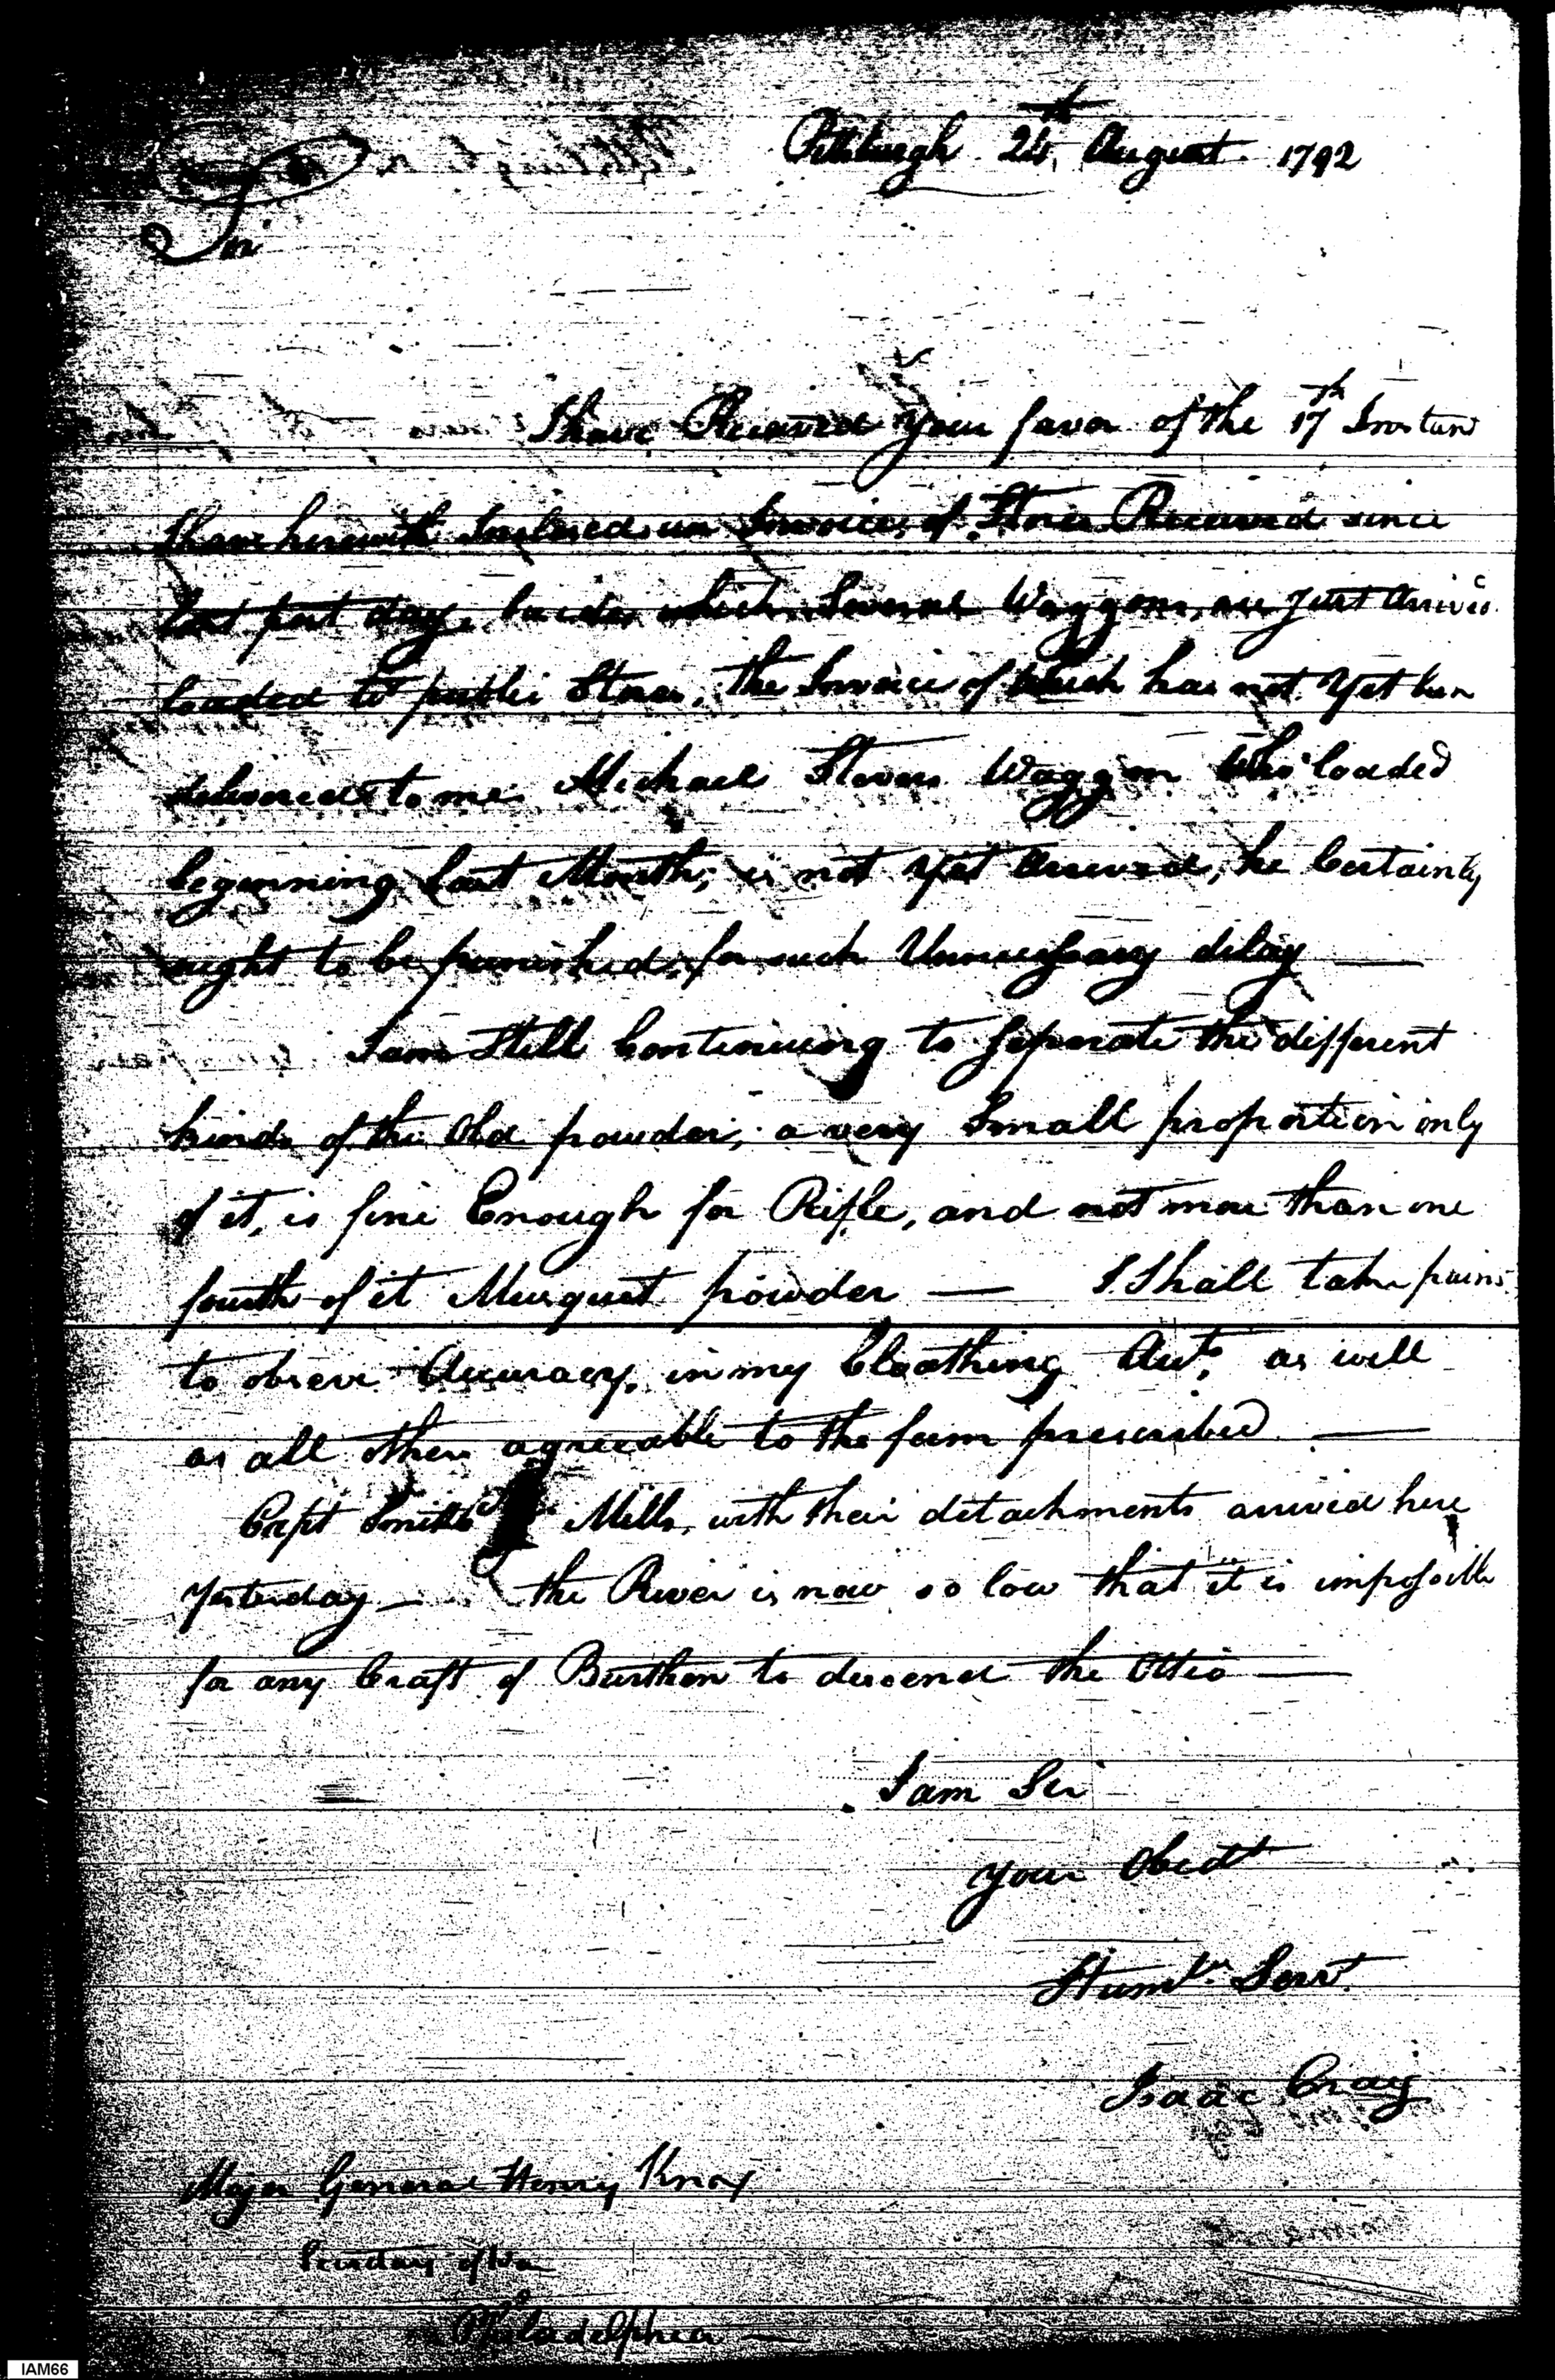 Pittsburgh 24th August 1792
Sir
I have Received your favor of the 17th Instant
I have herewith Inclosed an Invoice of Stores Received since
last post day, besides which Several Waggons, are just arrived
loaded wt public Stores, the Invoice of which has not yet been
delivered to me. Michael Stovers Waggon Who loaded
beginning last Month, is not yet Arrived, he Certainly
ought to be punished, for such Unnecessary delay —
I am Still Continuing to Seperate the different
kinds of the Old powder, a very Small proportion only
of it, is fine Enough for Rifle, and not more than one
fourth of it Musquet powder — I Shall take pains
to observe Accuracy, in my Cloathing Acts, as well
as all others agreeable to the form prescribed —
Capt Smith Mills, with their detachments arrived here
Yesterday — the River is now so low that it is impossible
for any Craft of Burthen to descend the Ohio —
I am Sir
your Obedt
Humle Servt
Isaac Craig
Major General Henry Knox
Secretary of War
Philadelphia —
IAM66